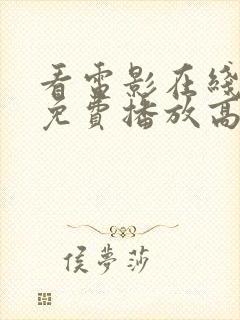 看雷影在綫
免費播放高
侯夢莎